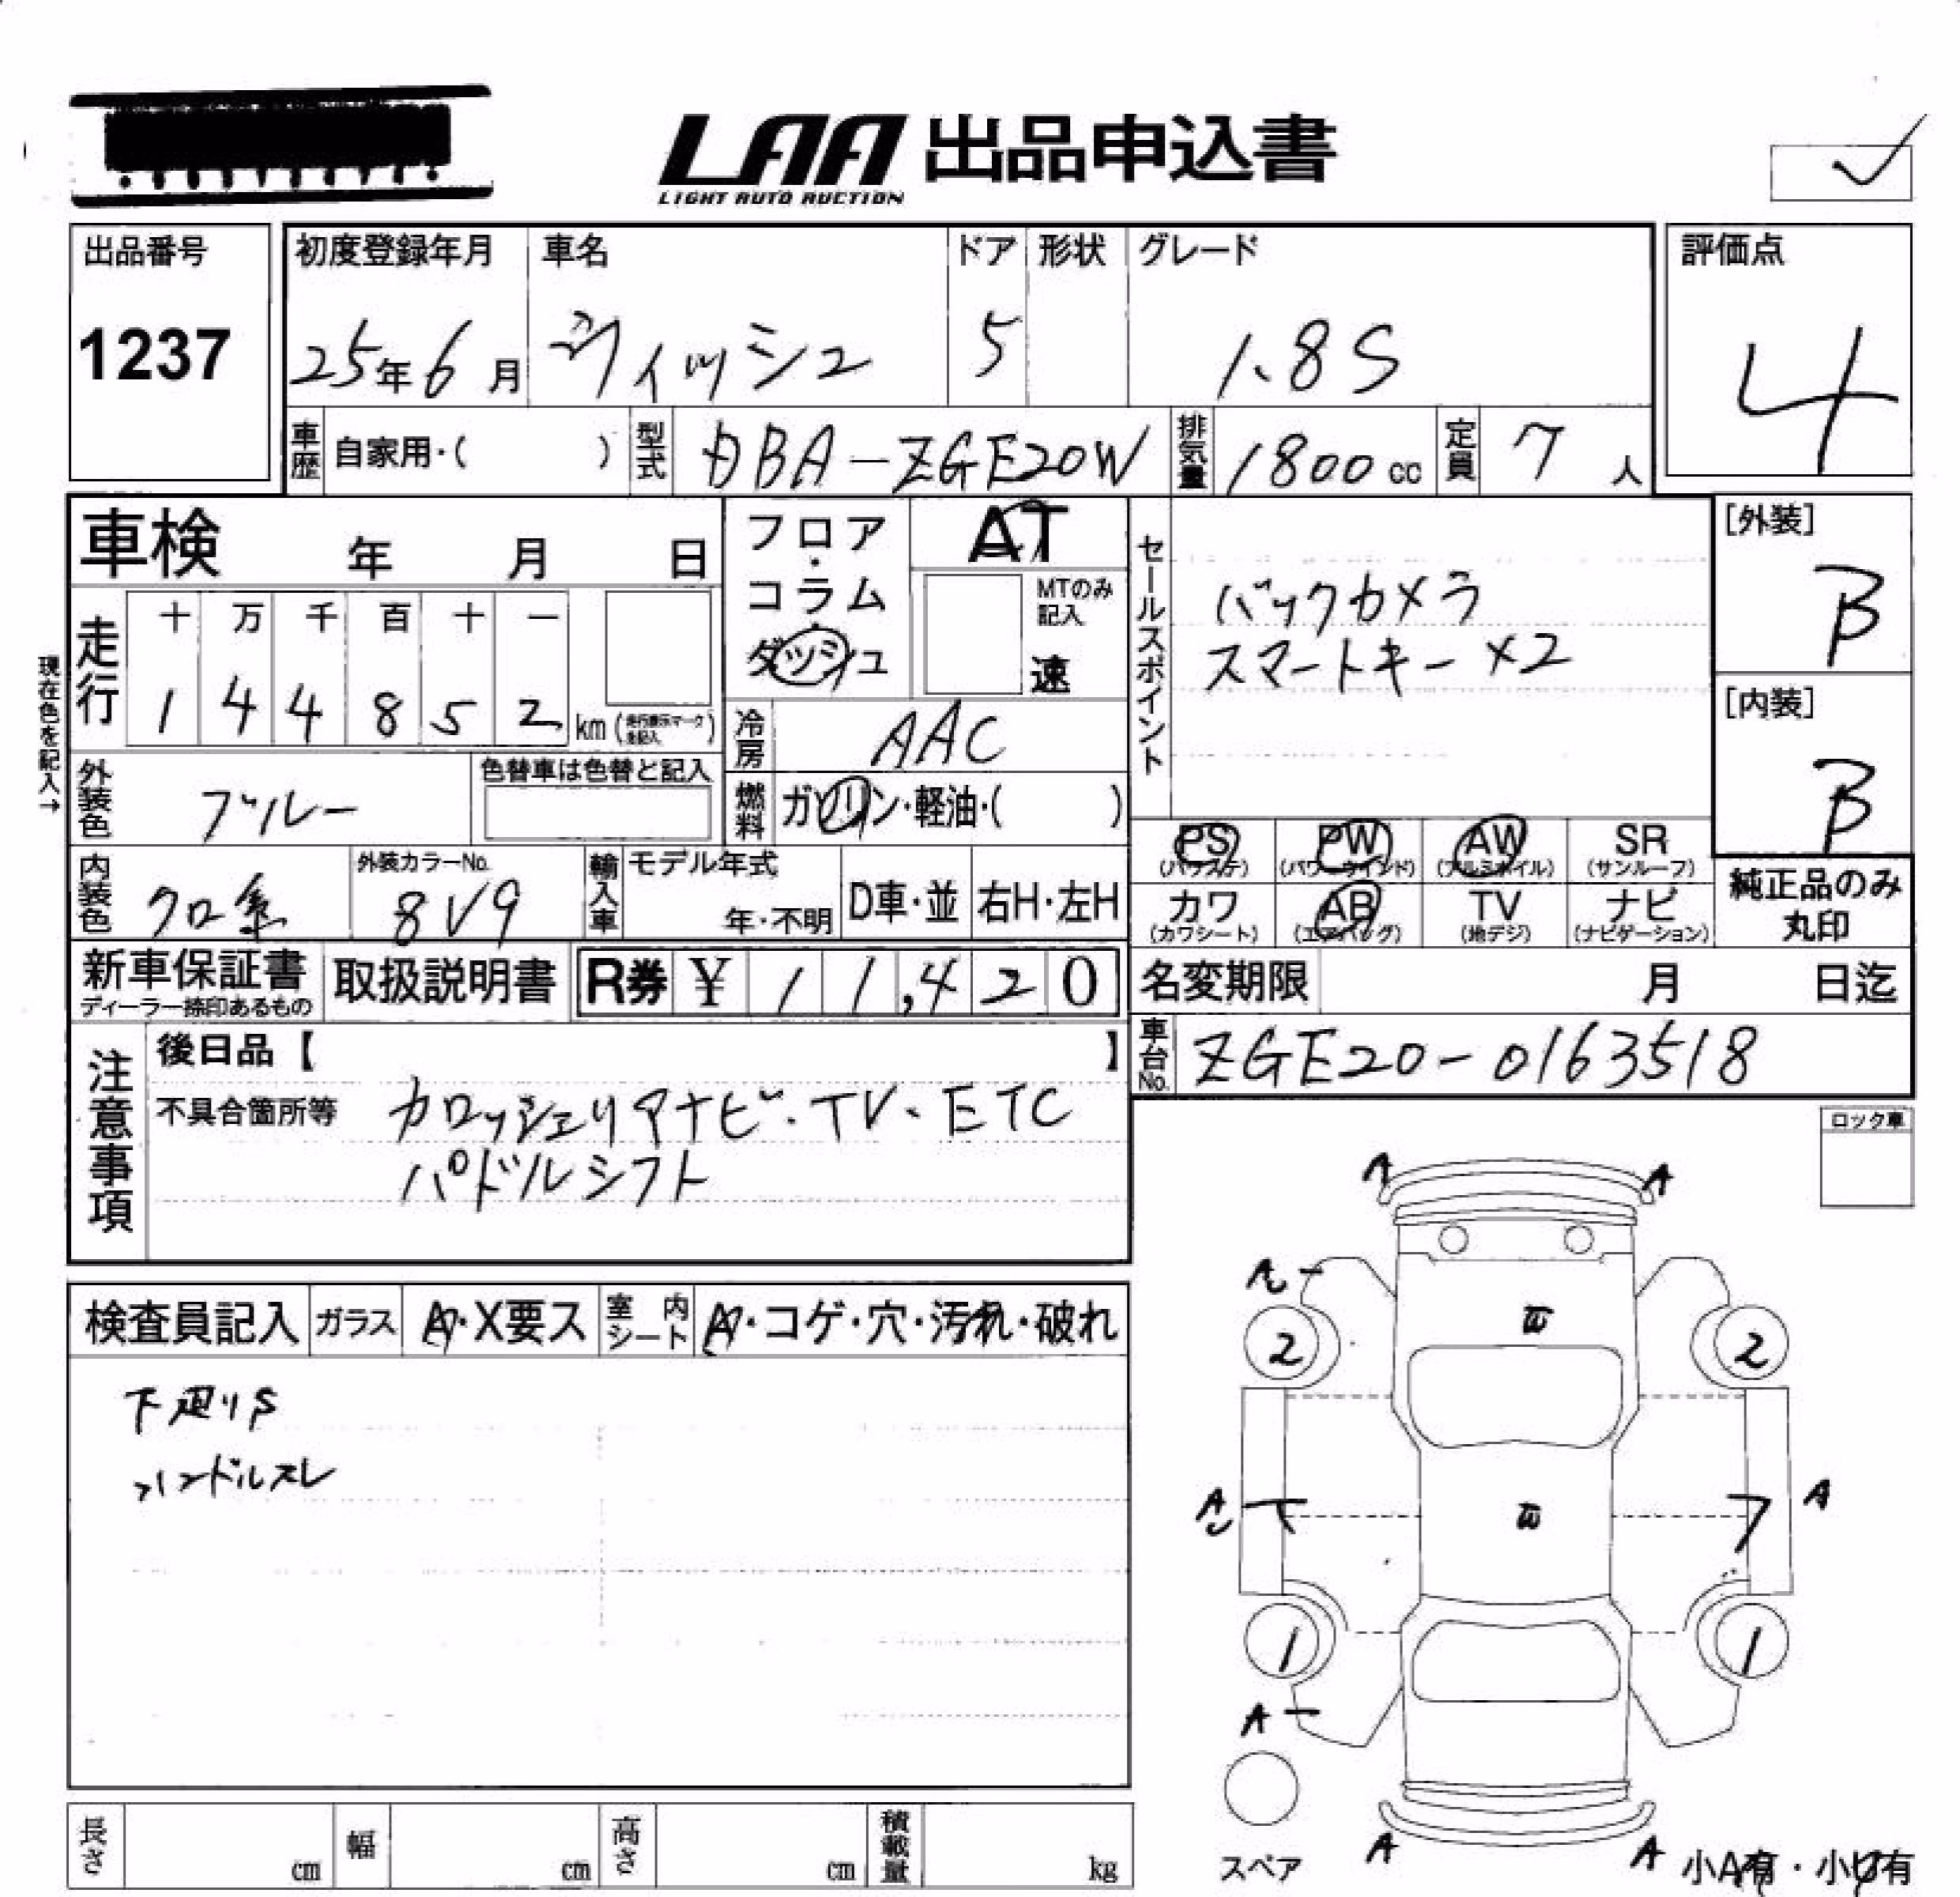 LAA 出品申込書
LIGHT AUTO AUCTION
出品番号
1237
初度登録年月
25年6月
車名
ヴィッシュ
ドア
5
形状
グレード
1.8S
評価点
4
車歴 自家用・( )
型式 DBA-ZGE20W
排気量 1800cc
定員 7人
車検 年 月 日
フロア・コラム・ダッシュ
AT
MTのみ記入
速
セールスポイント
バックカメラ
スマートキー×2
[外装]
B
[内装]
B
現在色を記入→
走行
十 万 千 百 十 一
1 4 4 8 5 2 km (走行表示マークを記入)
冷房 AAC
外装色 ブルー
色替車は色替と記入
燃料 ガソリン・軽油・( )
PS (パワステ)
PW (パワーウインド)
AW (アルミホイル)
SR (サンルーフ)
カワ (カワシート)
AB (エアバッグ)
TV (地デジ)
ナビ (ナビゲーション)
純正品のみ
丸印
内装色 クロ系
外装カラーNo.
8V9
輸入車 モデル年式
年・不明
D車・並
右H・左H
新車保証書
ディーラー捺印あるもの
取扱説明書
R券 ¥ 11,420
名変期限 月 日迄
車台No. ZGE20-0163518
注意事項
後日品【 】
不具合箇所等 カロッシェリアナビ・TV・ETC
パドルシフト
ロック車
検査員記入
ガラス A・X要ス
室内シート A・コゲ・穴・汚れ・破れ
下廻りS
ハンドルスレ
A A
A
W
2 2
A W A
1 1
A
スペア
A A
小A有・小U有
長さ cm
幅 cm
高さ cm
積載量 kg